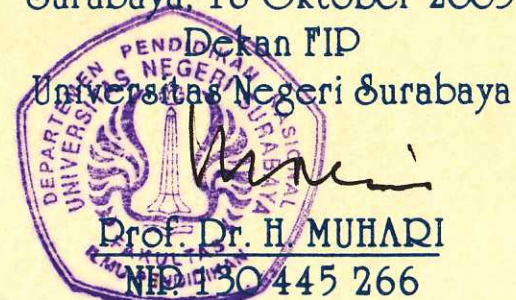 Surabaya, 18 Oktober 2009
Dekan FIP
Universitas Negeri Surabaya
DEPARTEMEN PENDIDIKAN NASIONAL
UNIVERSITAS NEGERI SURABAYA
FAKULTAS
ILMU PENDIDIKAN
Prof. Dr. H. MUHARI
NIP. 130 445 266